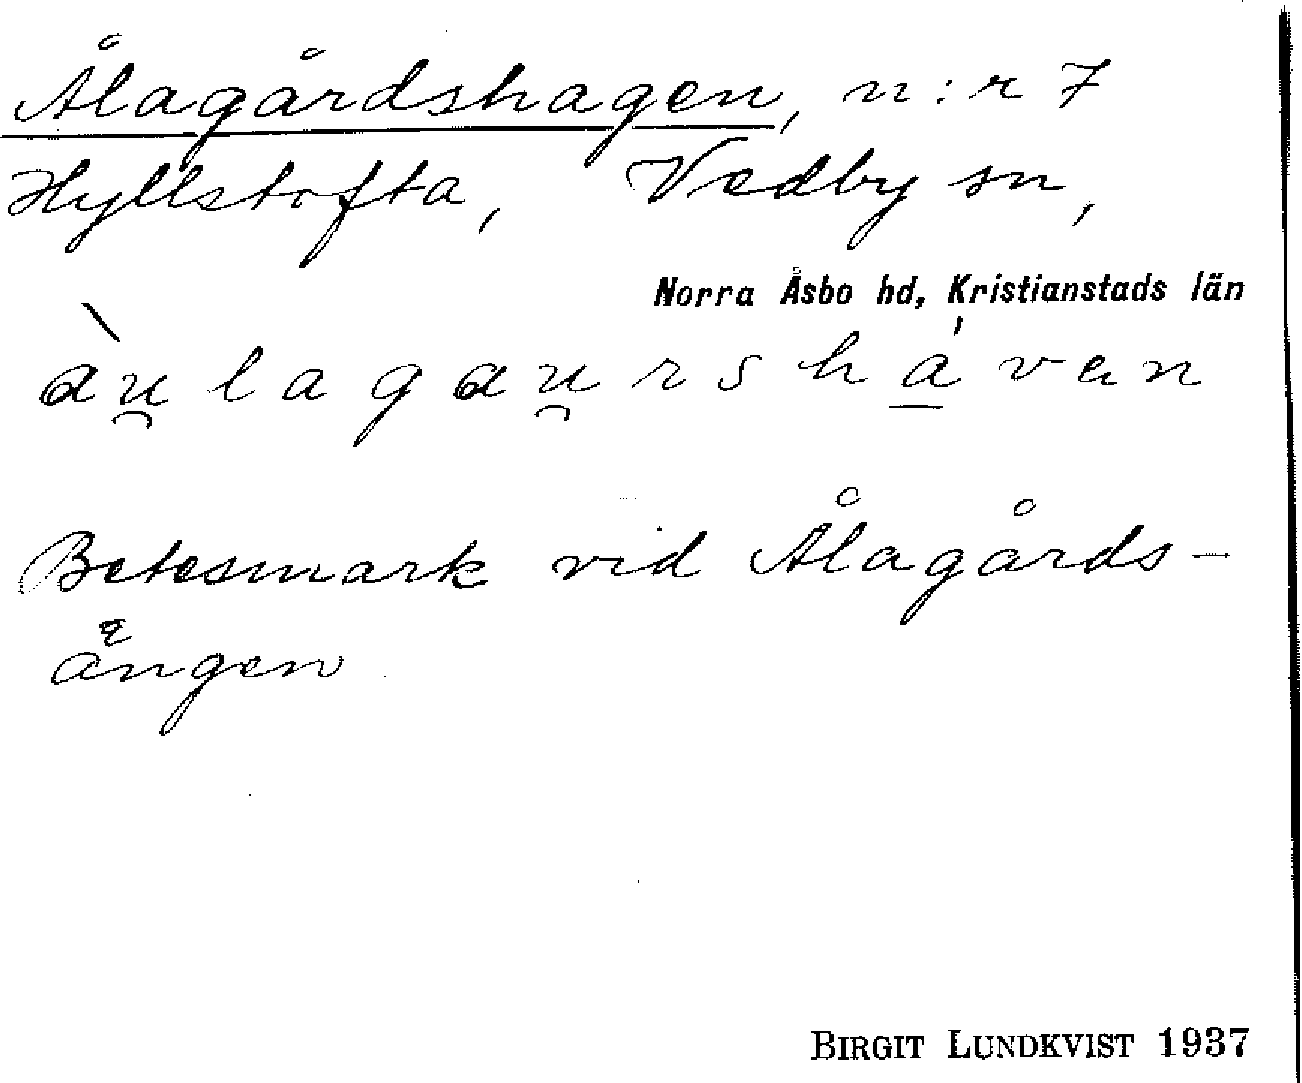 Ålagårdshagen, n:r 7
Hyllstofta, Vedby sn,
Norra Åsbo hd, Kristianstads län
àu̯lagau̯rshá̱van
Betesmark vid Ålagårds-
ängen
BIRGIT LUNDKVIST 1937